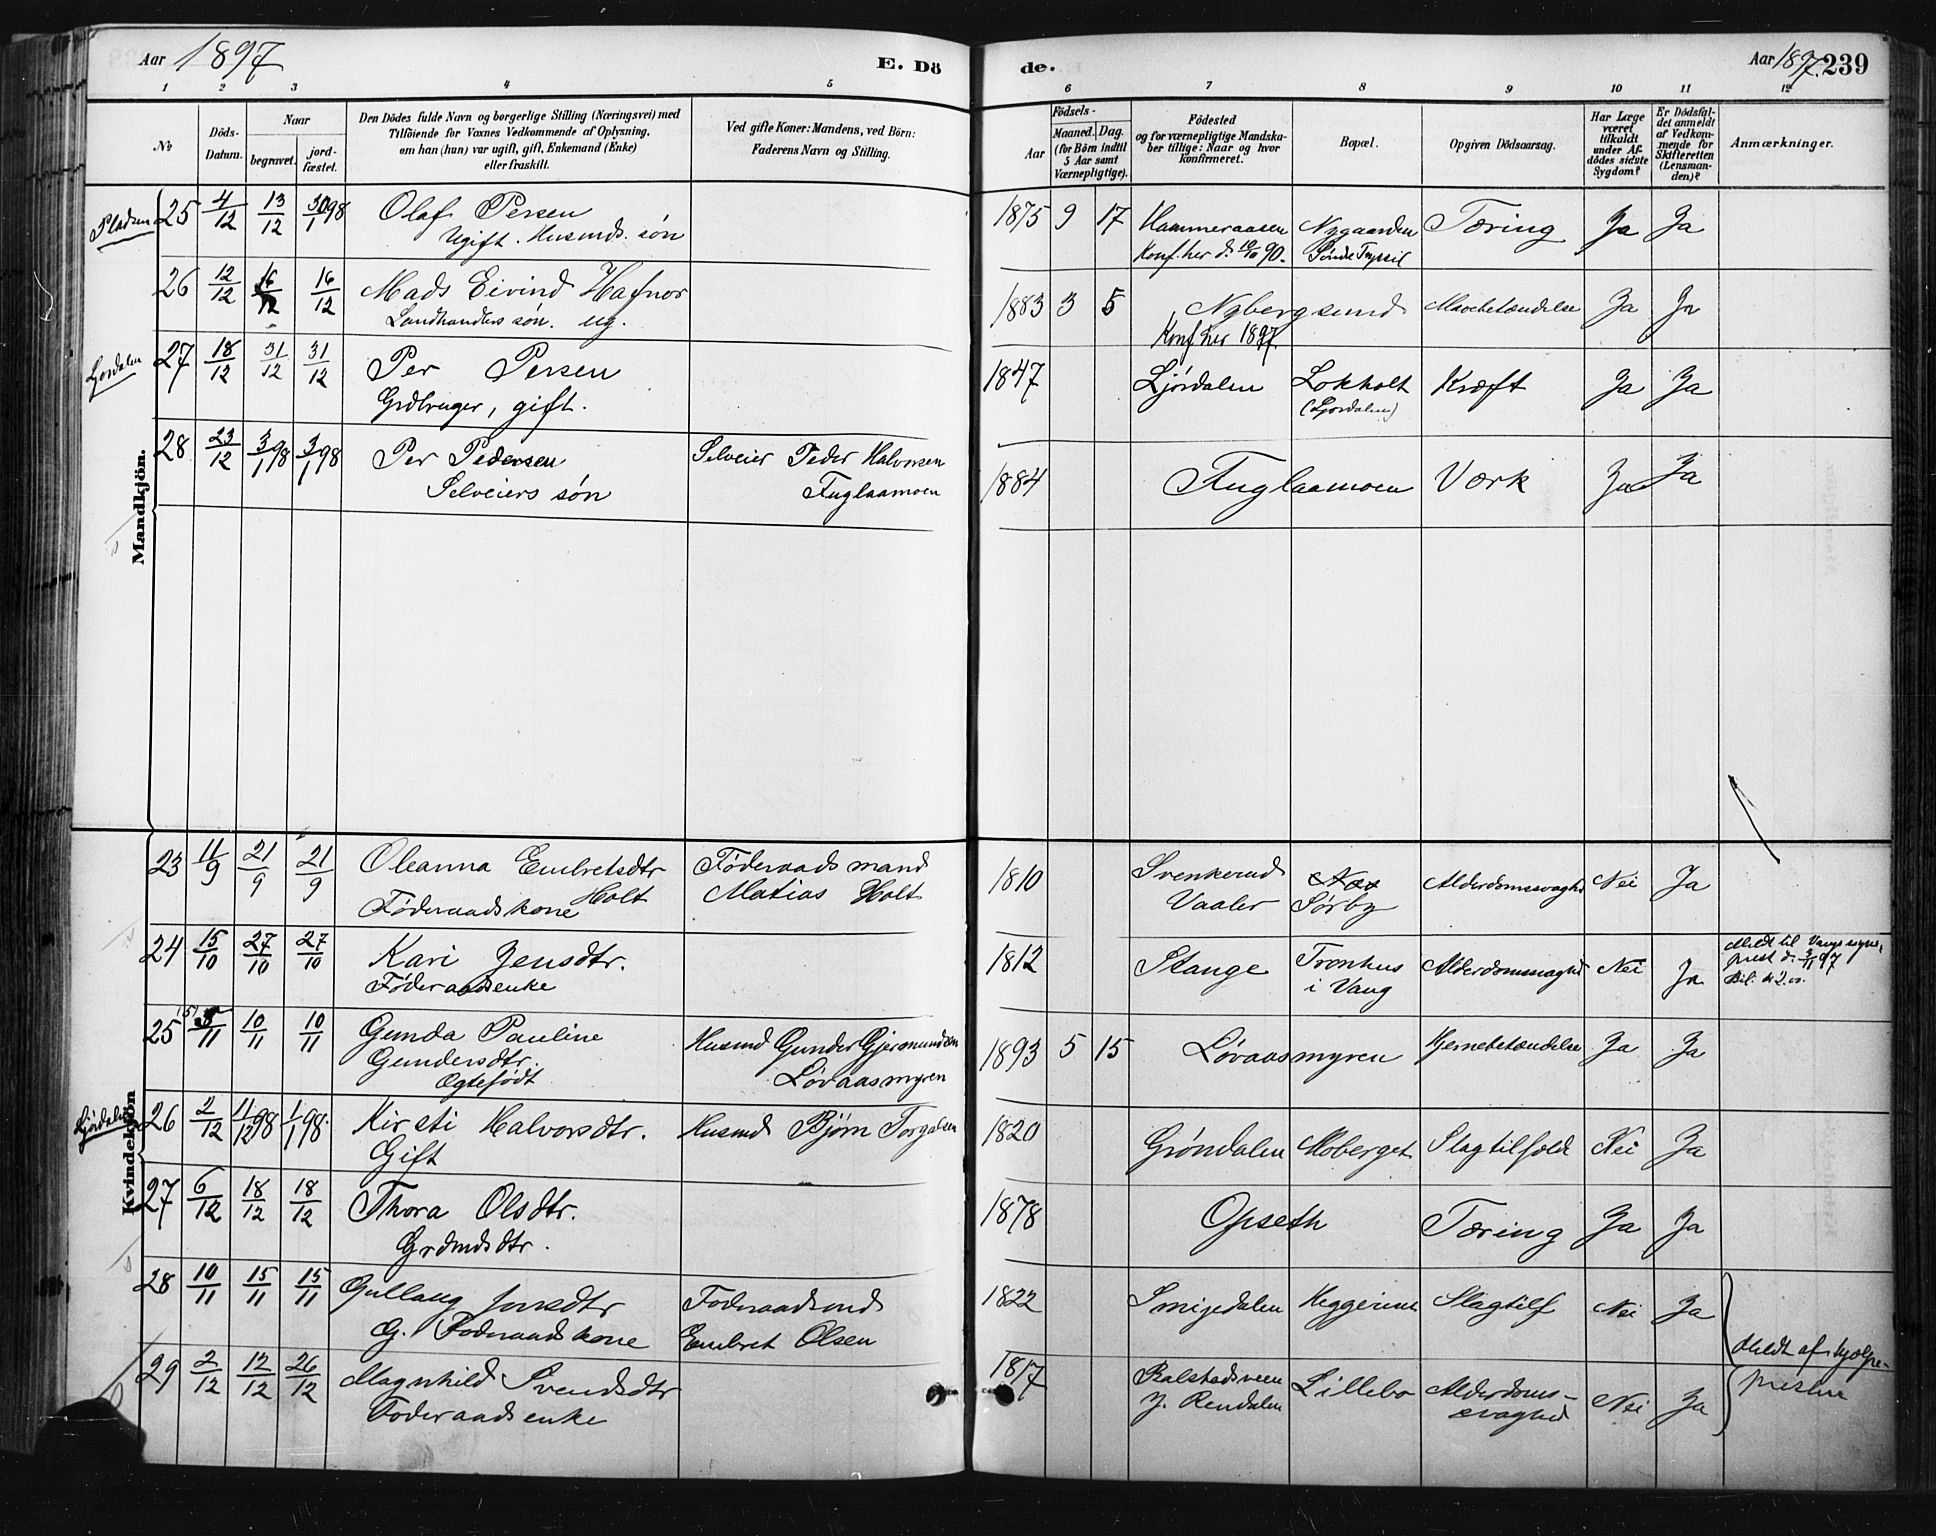 Aar 1897 E. Dö de. Aar 1897. 239
1 2 3 4 5 6 7 8 9 10 11 12
№ Döds-Datum. Naar begravet. jord-fæstet.
Den Dödes fulde Navn og borgerlige Stilling (Næringsvei) med
Tilföiende for Voxnes Vedkommende af Oplysning,
om han (hun) var ugift, gift, Enkemand (Enke)
eller fraskilt.
Ved gifte Koner: Mandens, ved Börn:
Faderens Navn og Stilling.
Födsels-
Aar Maaned. Dag.
(for Börn indtil
5 Aar samt
Værnepligtige).
Födested
og for værnepligtige Mandska-
ber tillige: Naar og hvor
Konfirmeret.
Bopæl.
Opgiven Dödsaarsag.
Har Læge
været
tilkaldt
under Af-
dödes sidste
Sygdom?
Er Dödsfal-
det anmeldt
af Vedkom-
mende for
Skifteretten
(Lensman-
den)?
Anmærkninger.
Mandkjön.
Pladsen 25 4/12 13/12 30/1 98 Olaf Persen 1875 9 17 Hammeraasen Nygaarden Tæring Ja Ja
Ugift. Husmds. søn Konf. her d. 19/10 90. Søndre Trysil
26 12/12 16/12 16/12 Mads Eivind Hafnor 1883 3 5 Nybergsund Mavebetændelse Ja Ja
Landhandlers søn. ug. Konf. her 1897.
Ljørdalen 27 18/12 31/12 31/12 Per Persen 1847 Ljørdalen Lokholt Kræft Ja Ja
Grdbruger, gift. (Ljordalen)
28 23/12 3/1 98 3/1 98 Per Pedersen Selveier Peder Halvorsen 1884 Fuglaamoen Værk Ja Ja
Selveiers søn Fuglaamoen
Kvindekjön
23 11/9 21/9 21/9 Oleanna Embretsdtr Føderaadsmand 1810 Svenkerud Næs Alderdomssvaghed Nei Ja
Holt Matias Holt Vaaler Sørby
Føderaadskone
24 15/10 27/10 27/10 Kari Jensdtr. 1812 Stange Tronhus Alderdomssvaghed Nei Ja Meldt til Vangs sogne-
Føderaadsenke i Vang prest d. 3/11 97
Bil.
25 5/11 10/11 10/11 Gunda Pauline Husmd Gunder Gjermundsen 1893 5 15 Løvaasmyren Hjernebetændelse Ja Ja
Gundersdtr. Løvaasmyren
Ægtefødt
Ljørdalen 26 2/12 1/1 98 Kirsti Halvorsdtr. Husmd Bjørn Torgalsen 1820 Grøndalen Moberget Slagtilfæld Nei Ja
Gift
27 6/12 18/12 18/12 Thora Olsdtr. 1878 Opseth Tæring Ja Ja
Grdmdsdtr.
28 10/11 15/11 15/11 Gullaug Jonsdtr Foderaadsmd 1822 Smigedalen Heggeriset Slagtilf Nei Ja
G. Foderaadskone Embret Olsen Meldt af hjælpe-
29 2/12 12/12 26/12 Magnhild Svendsdtr 1817 Lillebo Alderdoms- Nei Ja presten
Foderaadsenke Y. Rendalen svaghed